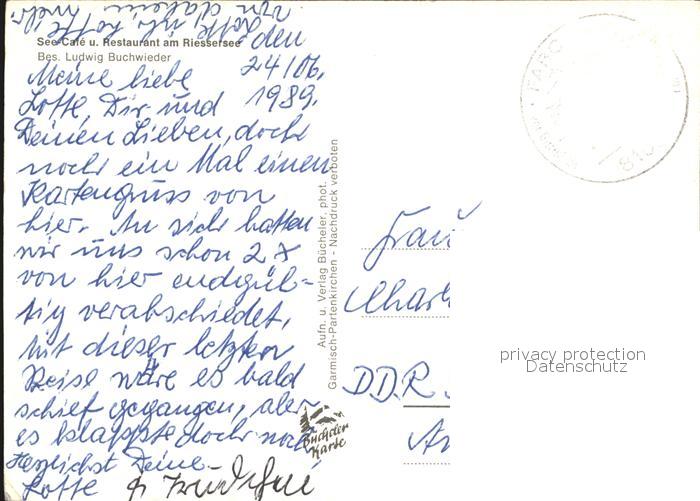 See-Café u. Restaurant am Riessersee
Bes. Ludwig Buchwieder
den
24/06.
1989.
Meine liebe
Lotte, Dir und
Deinen Lieben, doch
noch ein Mal einen
Kartengruss von
hier. An sich hatten
wir uns schon 2 x
von hier endgül-
tig verabschiedet,
mit dieser letzten
Reise wäre es bald
schief gegangen, aber
es klappte doch noch
Herzlichst Deine
Lotte
Aufn. u. Verlag Bücheler, phot.
Garmisch-Partenkirchen - Nachdruck verboten
Bücheler
Karte
Frau
DDR
privacy protection
Datenschutz